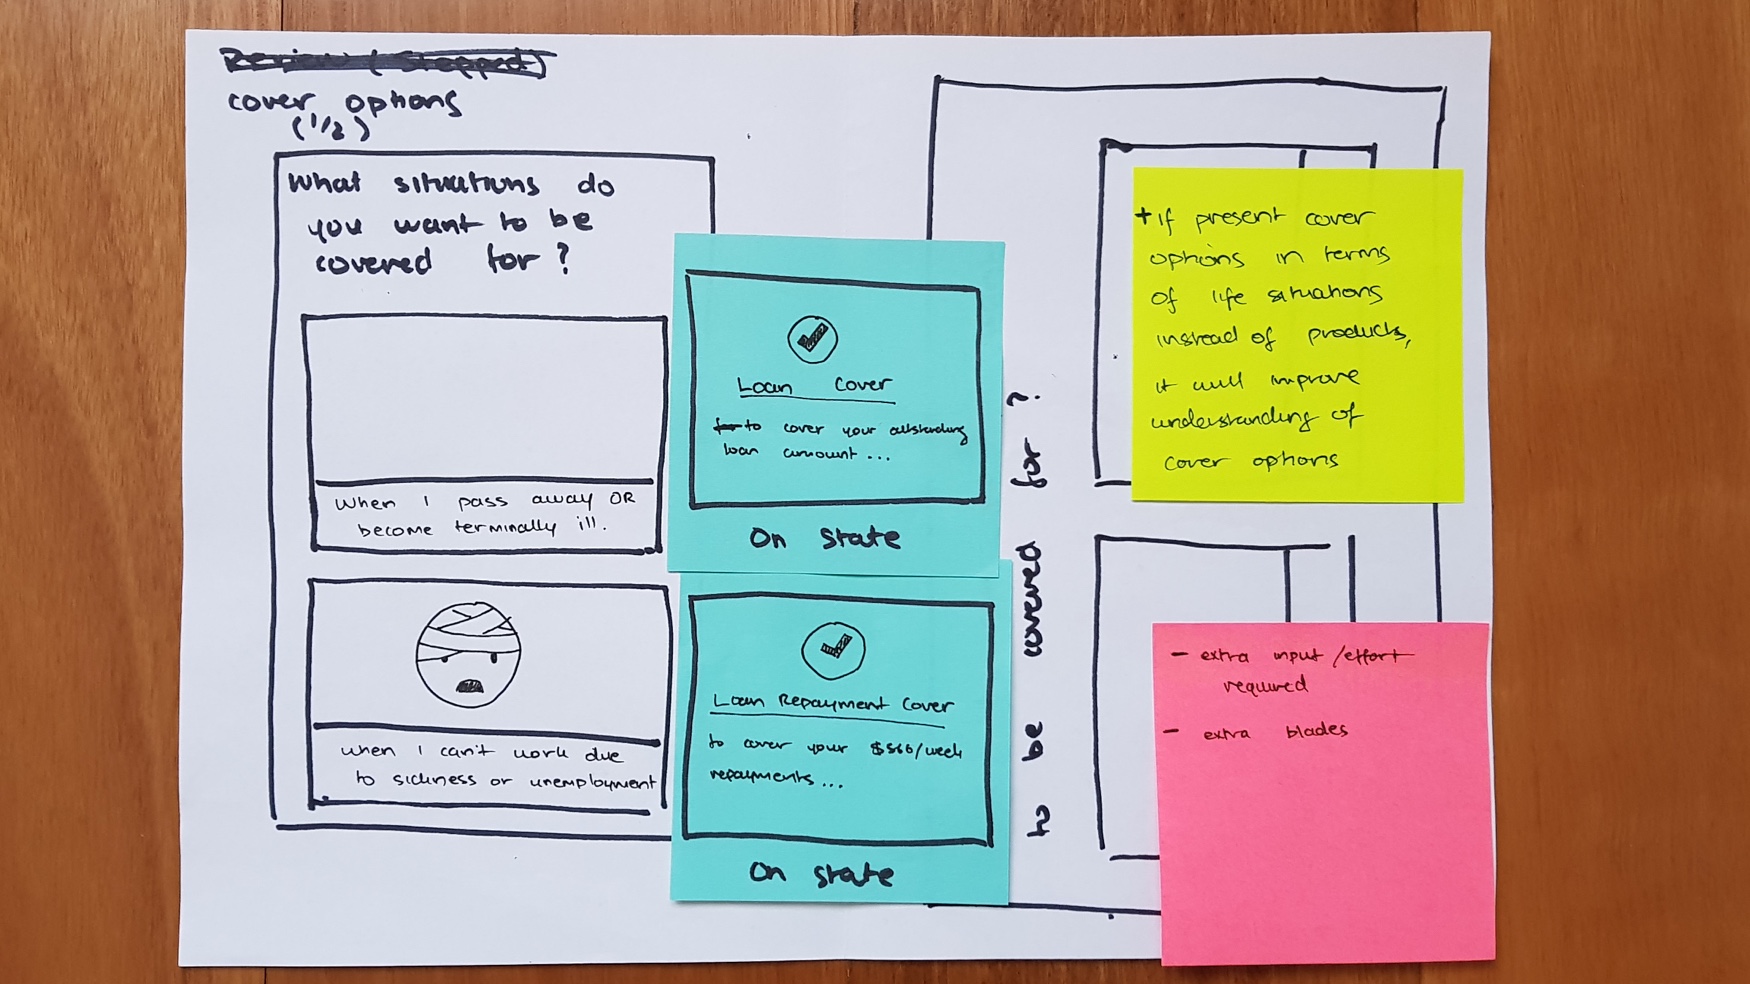 Review (Stepped)
cover options
(1/2)
What situations do
you want to be
covered for?
When I pass away OR
become terminally ill.
when I can't work due
to sickness or unemployment
Loan Cover
for to cover your outstanding
loan amount...
On state
Loan Repayment Cover
to cover your $560/week
repayments...
On state
to be covered for?
+ If present cover
options in terms
of life situations
instead of products,
it will improve
understanding of
cover options
- extra input/effort
required
- extra blades